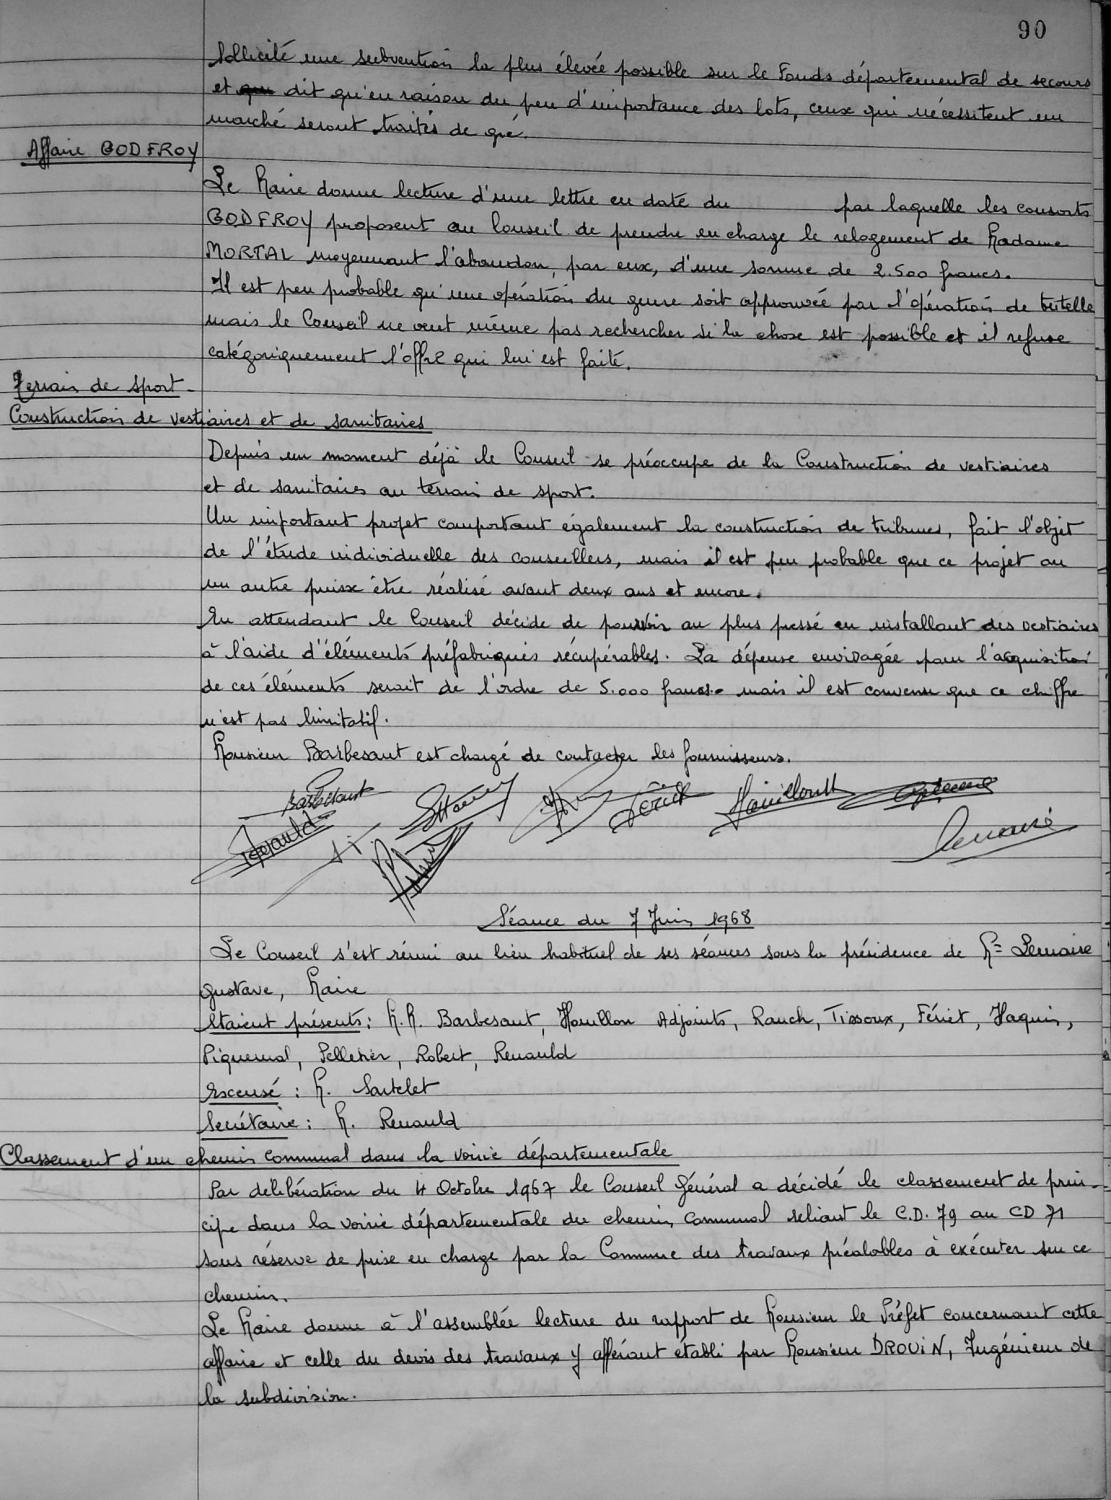 90
Sollicité une subvention la plus élevée possible sur le Fonds départemental de secours
et dit qu'en raison du peu d'importance des lots, ceux qui nécessitent un
marché seront traités de gré.
Affaire GODFROY
Le Maire donne lecture d'une lettre en date du par laquelle les consorts
GODFROY proposent au Conseil de prendre en charge le relogement de Madame
MORTAL moyennant l'abandon, par eux, d'une somme de 2.500 francs.
Il est peu probable qu'une opération du genre soit approuvée par l'opération de tutelle
mais le Conseil ne veut même pas rechercher si la chose est possible et il refuse
catégoriquement l'offre qui lui est faite.
Terrain de sport -
Construction de vestiaires et de sanitaires
Depuis un moment déjà le Conseil se préoccupe de la Construction de vestiaires
et de sanitaires au terrain de sport.
Un important projet comportant également la construction de tribunes, fait l'objet
de l'étude individuelle des conseillers, mais il est peu probable que ce projet ou
un autre puisse être réalisé avant deux ans et encore.
En attendant le Conseil décide de pourvoir au plus pressé en installant des vestiaires
à l'aide d'éléments préfabriqués récupérables. La dépense envisagée pour l'acquisition
de ces éléments serait de l'ordre de 5.000 francs. mais il est convenu que ce chiffre
n'est pas limitatif.
Monsieur Barbesant est chargé de contacter les fournisseurs.
Barbesant
Fériet
Houillon
Renauld
Lemaire
Séance du 7 Juin 1968
Le Conseil s'est réuni au lieu habituel de ses séances sous la présidence de Mr Lemaire
Gustave, Maire
Etaient présents : M.M. Barbesant, Houillon Adjoints, Rauch, Tissoux, Fériet, Haquin,
Piquemal, Pelletier, Robert, Renauld
Excusé : M. Sartelet
Secrétaire : M. Renauld
Classement d'un chemin communal dans la voirie départementale
Par délibération du 4 Octobre 1967 le Conseil Général a décidé le classement de prin-
cipe dans la voirie départementale du chemin communal reliant le C.D. 79 au CD 71
sous réserve de prise en charge par la Commune des travaux préalables à exécuter sur ce
chemin.
Le Maire donne à l'assemblée lecture du rapport de Monsieur le Préfet concernant cette
affaire et celle du devis des travaux y afférant établi par Monsieur DROUIN, Ingénieur de
la subdivision.